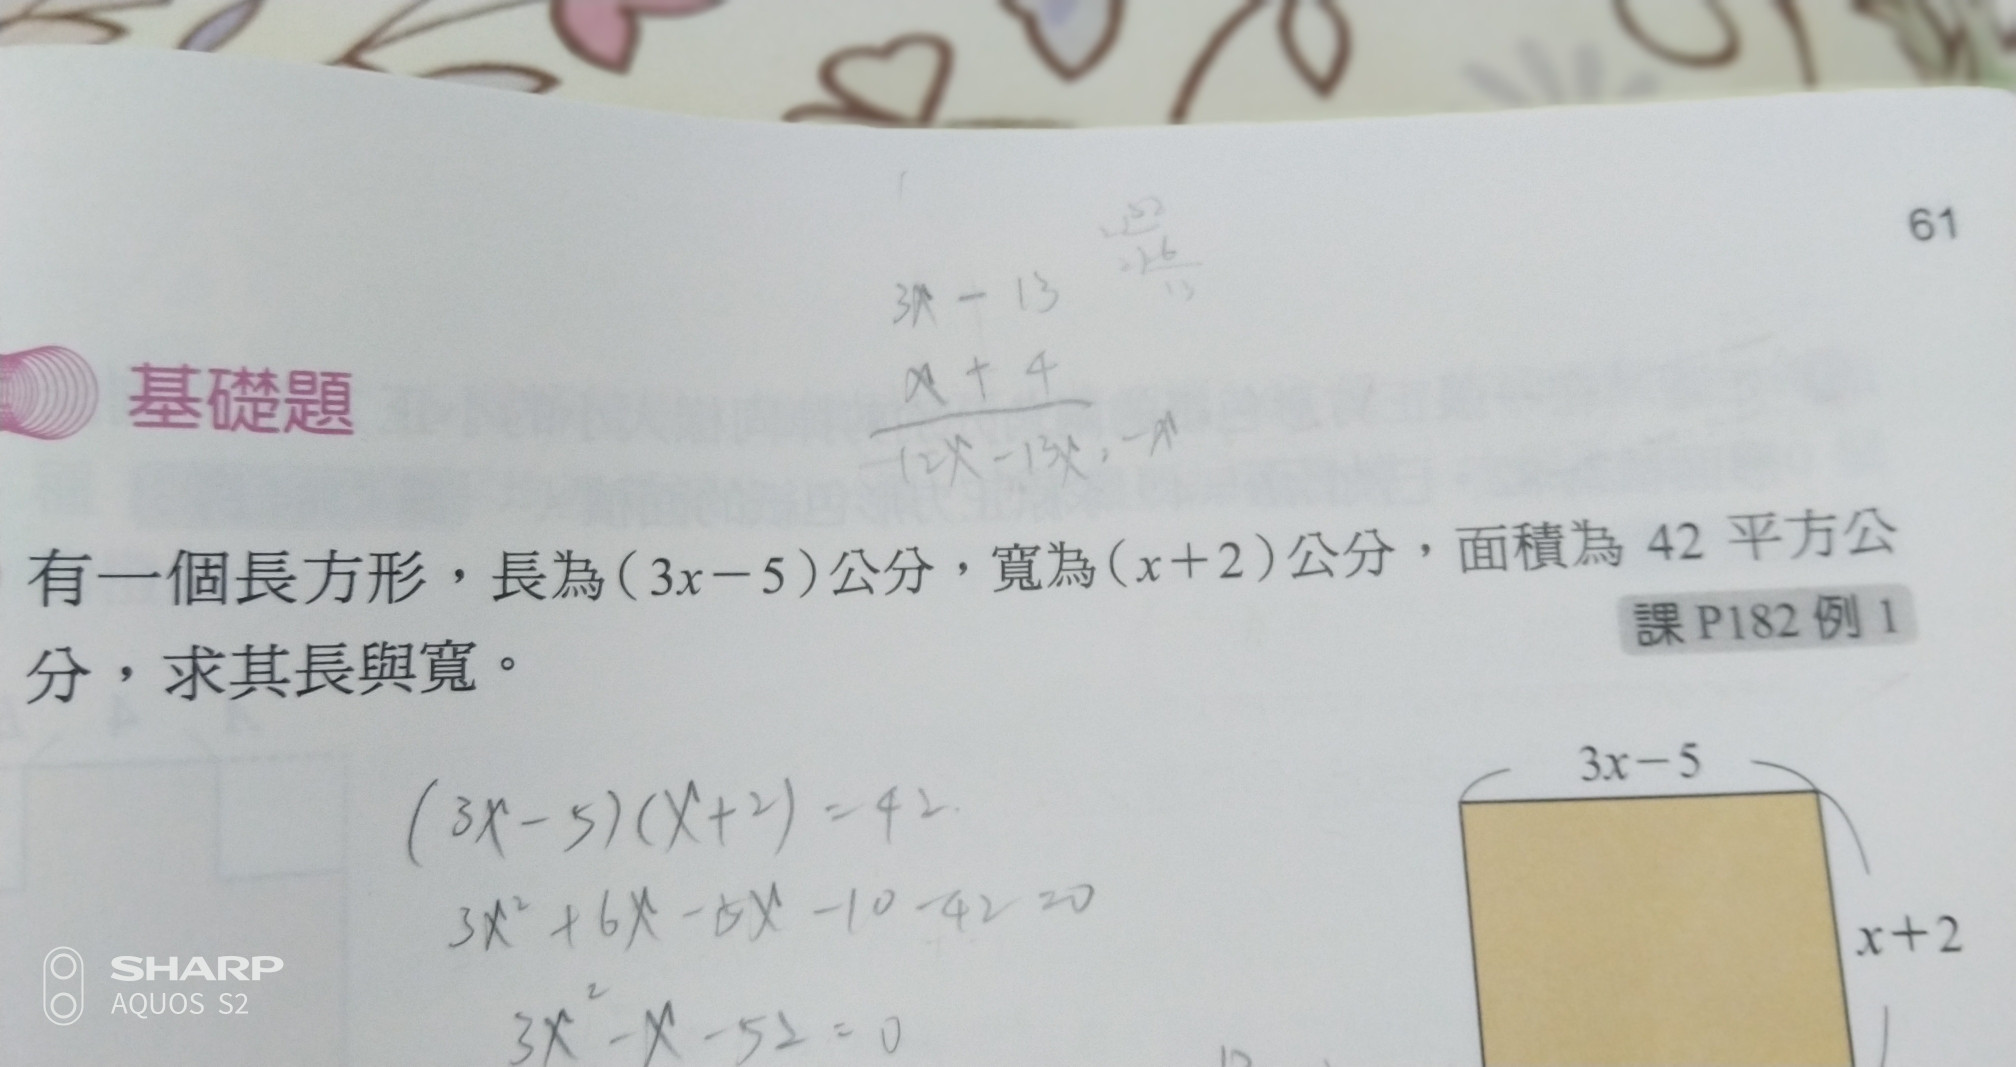 61
3x - 13
x + 4
12x - 13x = -x
基礎題
有一個長方形，長為(3x-5)公分，寬為(x+2)公分，面積為 42 平方公
分，求其長與寬。
課 P182 例 1
3x-5
(3x-5)(x+2)=42
3x²+6x-5x-10-42=0
x+2
3x²-x-52=0
SHARP
AQUOS S2